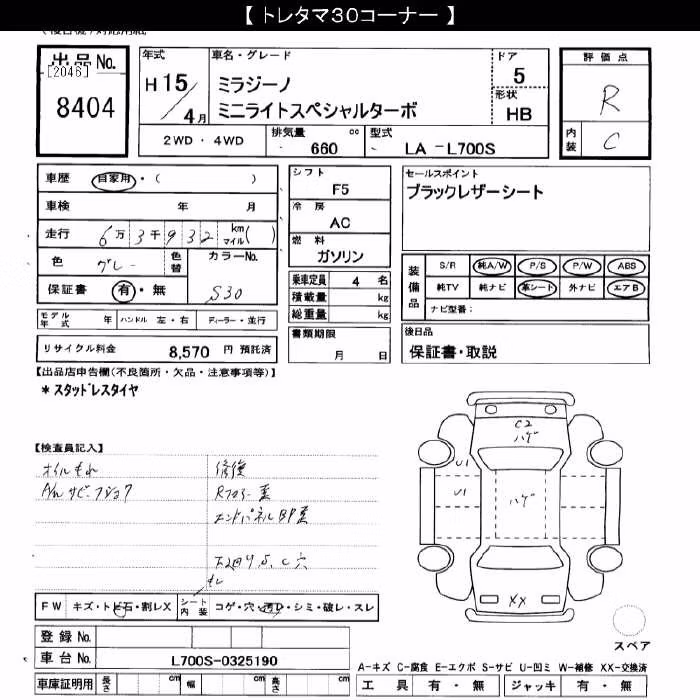 【 トレタマ30コーナー 】
出品No.
[2046]
8404
年式
H 15 / 4月
車名・グレード
ミラジーノ
ミニライトスペシャルターボ
ドア
5
形状
HB
評価点
R
内装
C
2WD ・ 4WD
排気量
660 cc
型式
LA -L700S
車歴 自家用・( )
車検 年 月
走行 6万 3千932 km マイル( )
色 グレー 色替 カラーNo.
S30
保証書 有・無
シフト
F5
冷房
AC
燃料
ガソリン
乗車定員 4 名
積載量 kg
総重量 kg
セールスポイント
ブラックレザーシート
装備品
S/R 純A/W P/S P/W ABS
純TV 純ナビ 革シート 外ナビ エアB
ナビ型番：
モデル年式 年 ハンドル 左・右 ディーラー・並行
リサイクル料金 8,570 円 預託済
書類期限
月 日
後日品
保証書・取説
【出品店申告欄(不良箇所・欠品・注意事項等)】
＊スタッドレスタイヤ
【検査員記入】
オイルもれ
修復
R フロアー歪
エンドパネルBP歪
下廻りS、C穴
C2
ハゲ
U1
U1
ハゲ
XX
FW キズ・トビ石・割レX シート内装 コゲ・穴・汚レ・シミ・破レ・スレ
スペア
登録No.
車台No. L700S-0325190
車庫証明用 長さ cm 幅 cm 高さ cm
A-キズ C-腐食 E-エクボ S-サビ U-凹ミ W-補修 XX-交換済
工具 有・無 ジャッキ 有・無